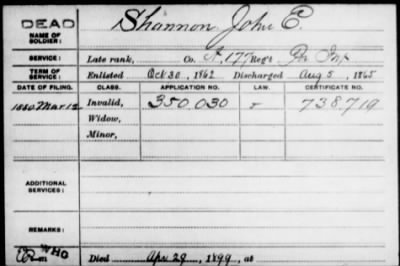 DEAD
NAME OF SOLDIER: Shannon, John E.
SERVICE: Late rank, Co. A, 177 Reg't Pa Inf
TERM OF SERVICE: Enlisted Oct 30, 1862 Discharged Aug 5, 1865
DATE OF FILING. CLASS. APPLICATION NO. LAW. CERTIFICATE NO.
1880 Mar 12 Invalid, 350,030 738,719
Widow,
Minor,
ADDITIONAL SERVICES:
REMARKS:
WHO
Died Apr 29, 1899, at